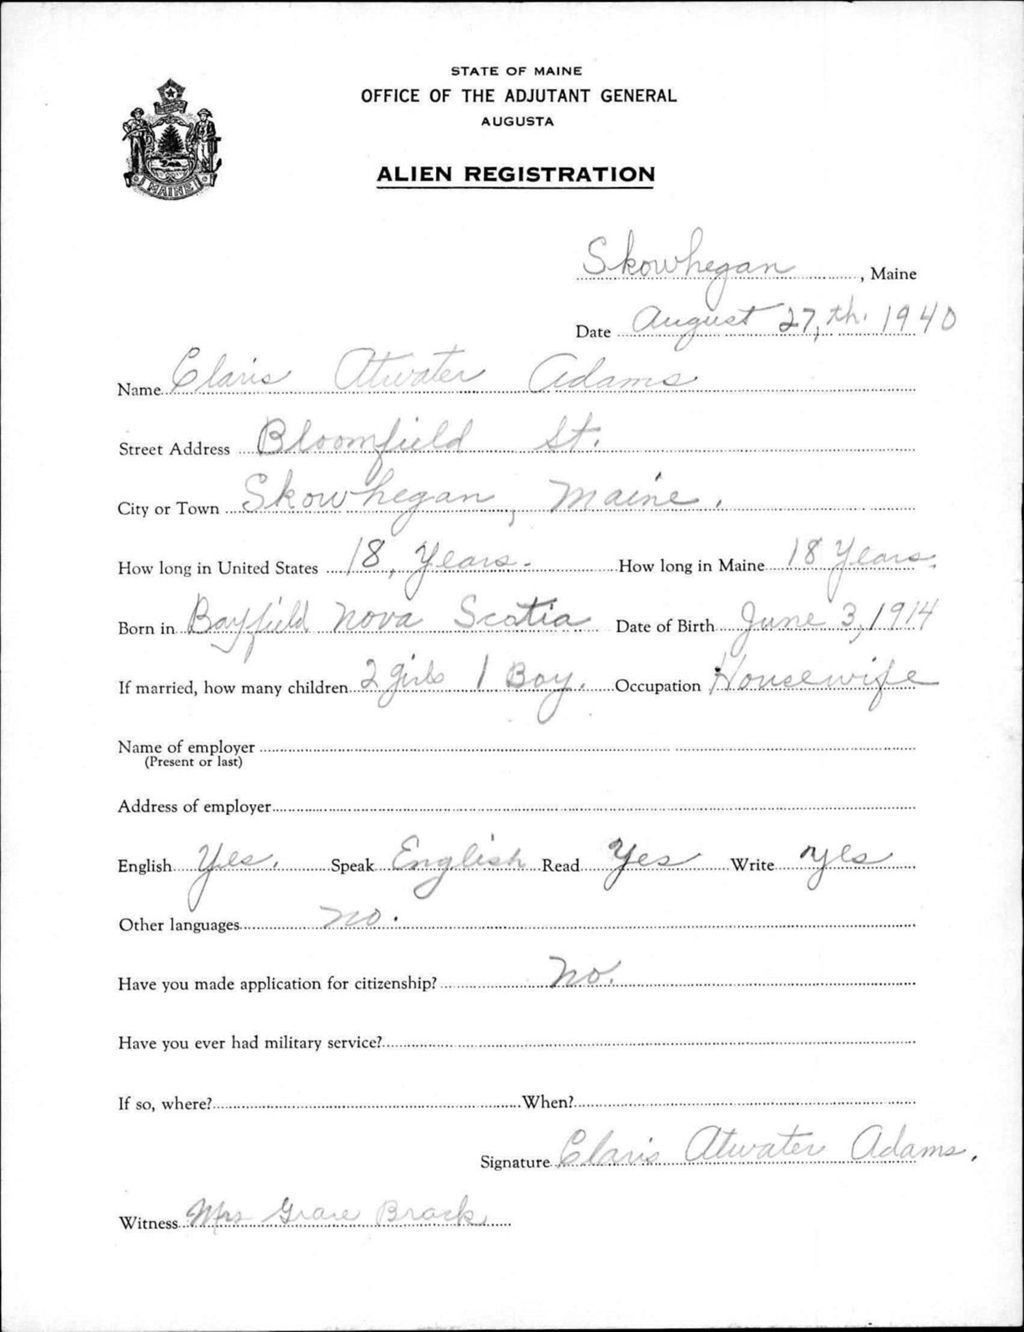 STATE OF MAINE
OFFICE OF THE ADJUTANT GENERAL
AUGUSTA
ALIEN REGISTRATION
MAINE
Skowhegan, Maine
Date August 27,th. 1940
Name Claris Atwater Adams
Street Address Bloomfield St.
City or Town Skowhegan, Maine.
How long in United States 18, Years. How long in Maine 18 Years.
Born in Bayfield Nova Scotia Date of Birth June 3, 1914
If married, how many children 2 girls 1 Boy. Occupation Housewife
Name of employer
(Present or last)
Address of employer
English Yes. Speak English Read Yes Write yes
Other languages no.
Have you made application for citizenship? No.
Have you ever had military service?
If so, where? When?
Signature Claris Atwater Adams.
Witness Mrs Grace Brack